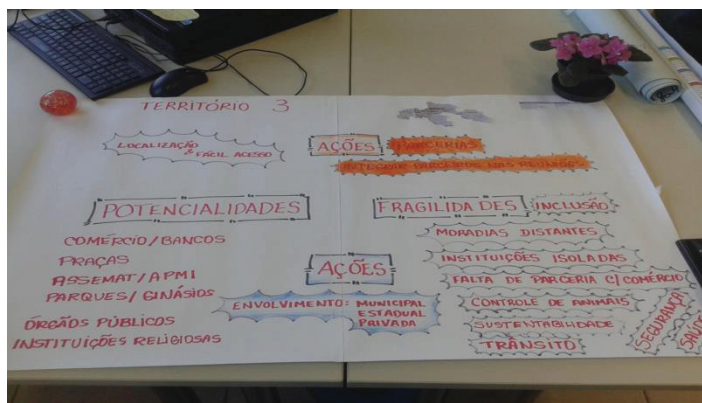 TERRITÓRIO 3
LOCALIZAÇÃO
& FÁCIL ACESSO
AÇÕES
PARCERIAS
INTEGRAR PARCEIROS NAS REUNIÕES
POTENCIALIDADES
COMÉRCIO/BANCOS
PRAÇAS
ASSEMAT/APMI
PARQUES/GINÁSIOS
ÓRGÃOS PÚBLICOS
INSTITUIÇÕES RELIGIOSAS
AÇÕES
ENVOLVIMENTO: MUNICIPAL
ESTADUAL
PRIVADA
FRAGILIDADES
INCLUSÃO
MORADIAS DISTANTES
INSTITUIÇÕES ISOLADAS
FALTA DE PARCERIA C/ COMÉRCIO
CONTROLE DE ANIMAIS
SUSTENTABILIDADE
TRÂNSITO
SEGURANÇA
SAÚDE